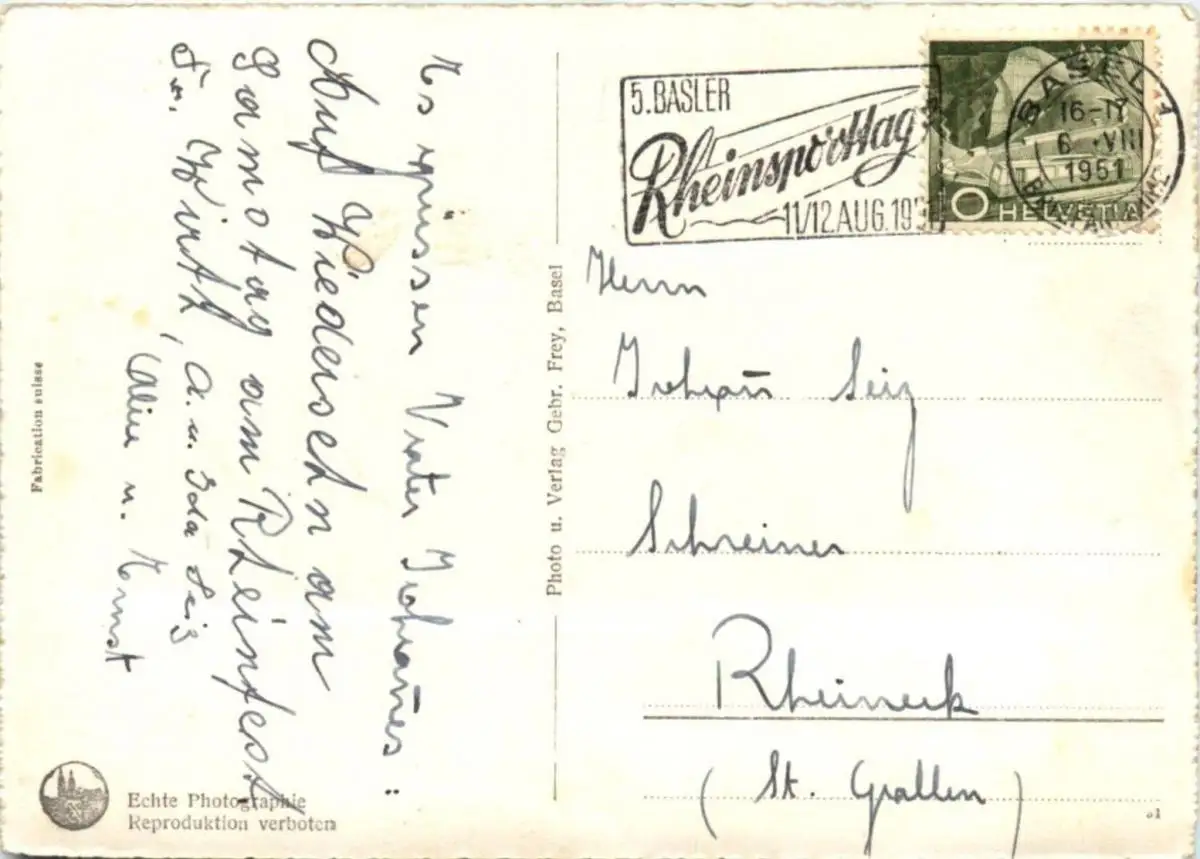 Es grüssen Vater Johannes:
Auf Wiedersehn am
Samstag am Rheinfest
Fr. Wirth, A. u. Ida Seiz
u. Ernst
Fabrication suisse
Echte Photographie
Reproduktion verboten
Photo u. Verlag Gebr. Frey, Basel
5. BASLER
Rheinsporttag
11/12. AUG. 19
BASEL 1
16-17
6. VIII
1951
10 HELVETIA
Herrn
Johann Seiz
Schreiner
Rheineck
(St. Gallen)